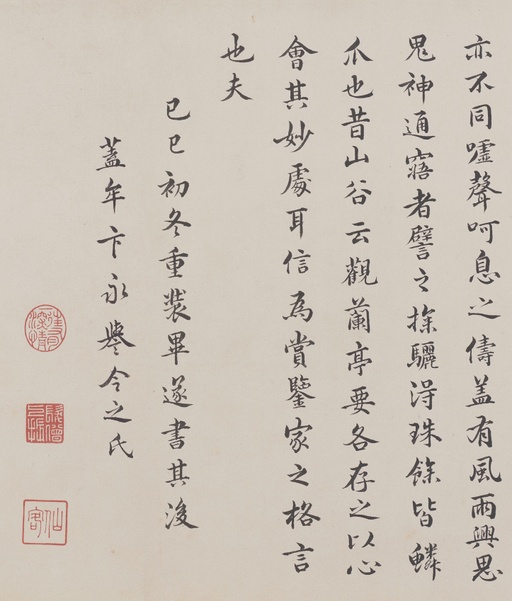 亦不同噓聲呵息之儔蓋有風雨興思
鬼神通寤者譬之探驪得珠餘皆鱗
爪也昔山谷云觀蘭亭要各存之以心
會其妙處耳信為賞鑒家之格言
也夫
己巳初冬重裝畢遂書其後
蓋牟卞永譽令之氏
仙客